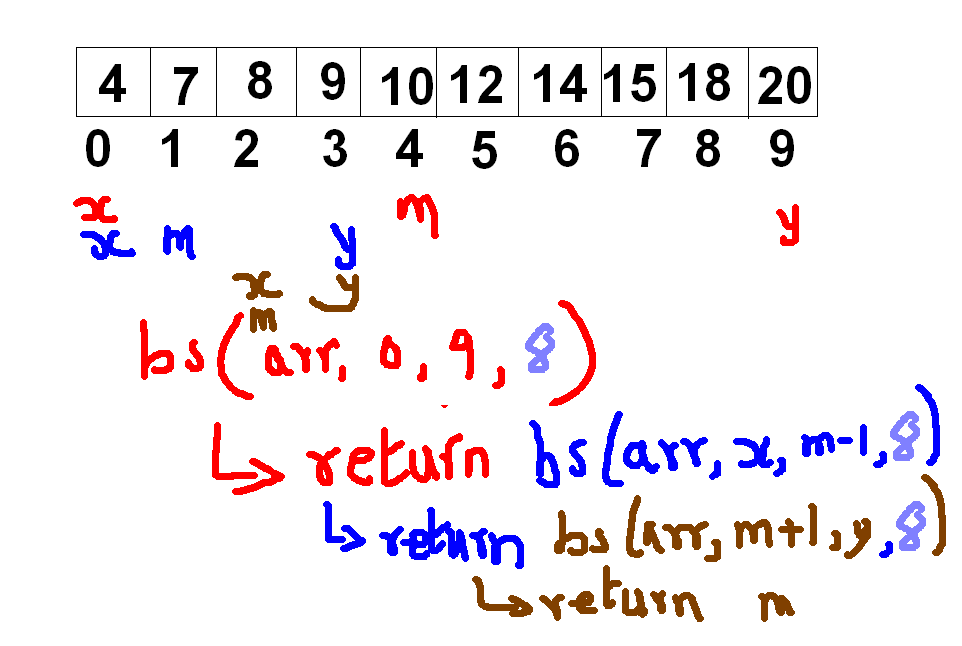 4 7 8 9 10 12 14 15 18 20
0 1 2 3 4 5 6 7 8 9
x m y
x m y
x y
m
bs(arr, 0, 9, 8)
↳ return bs(arr, x, m-1, 8)
↳ return bs(arr, m+1, y, 8)
↳ return m